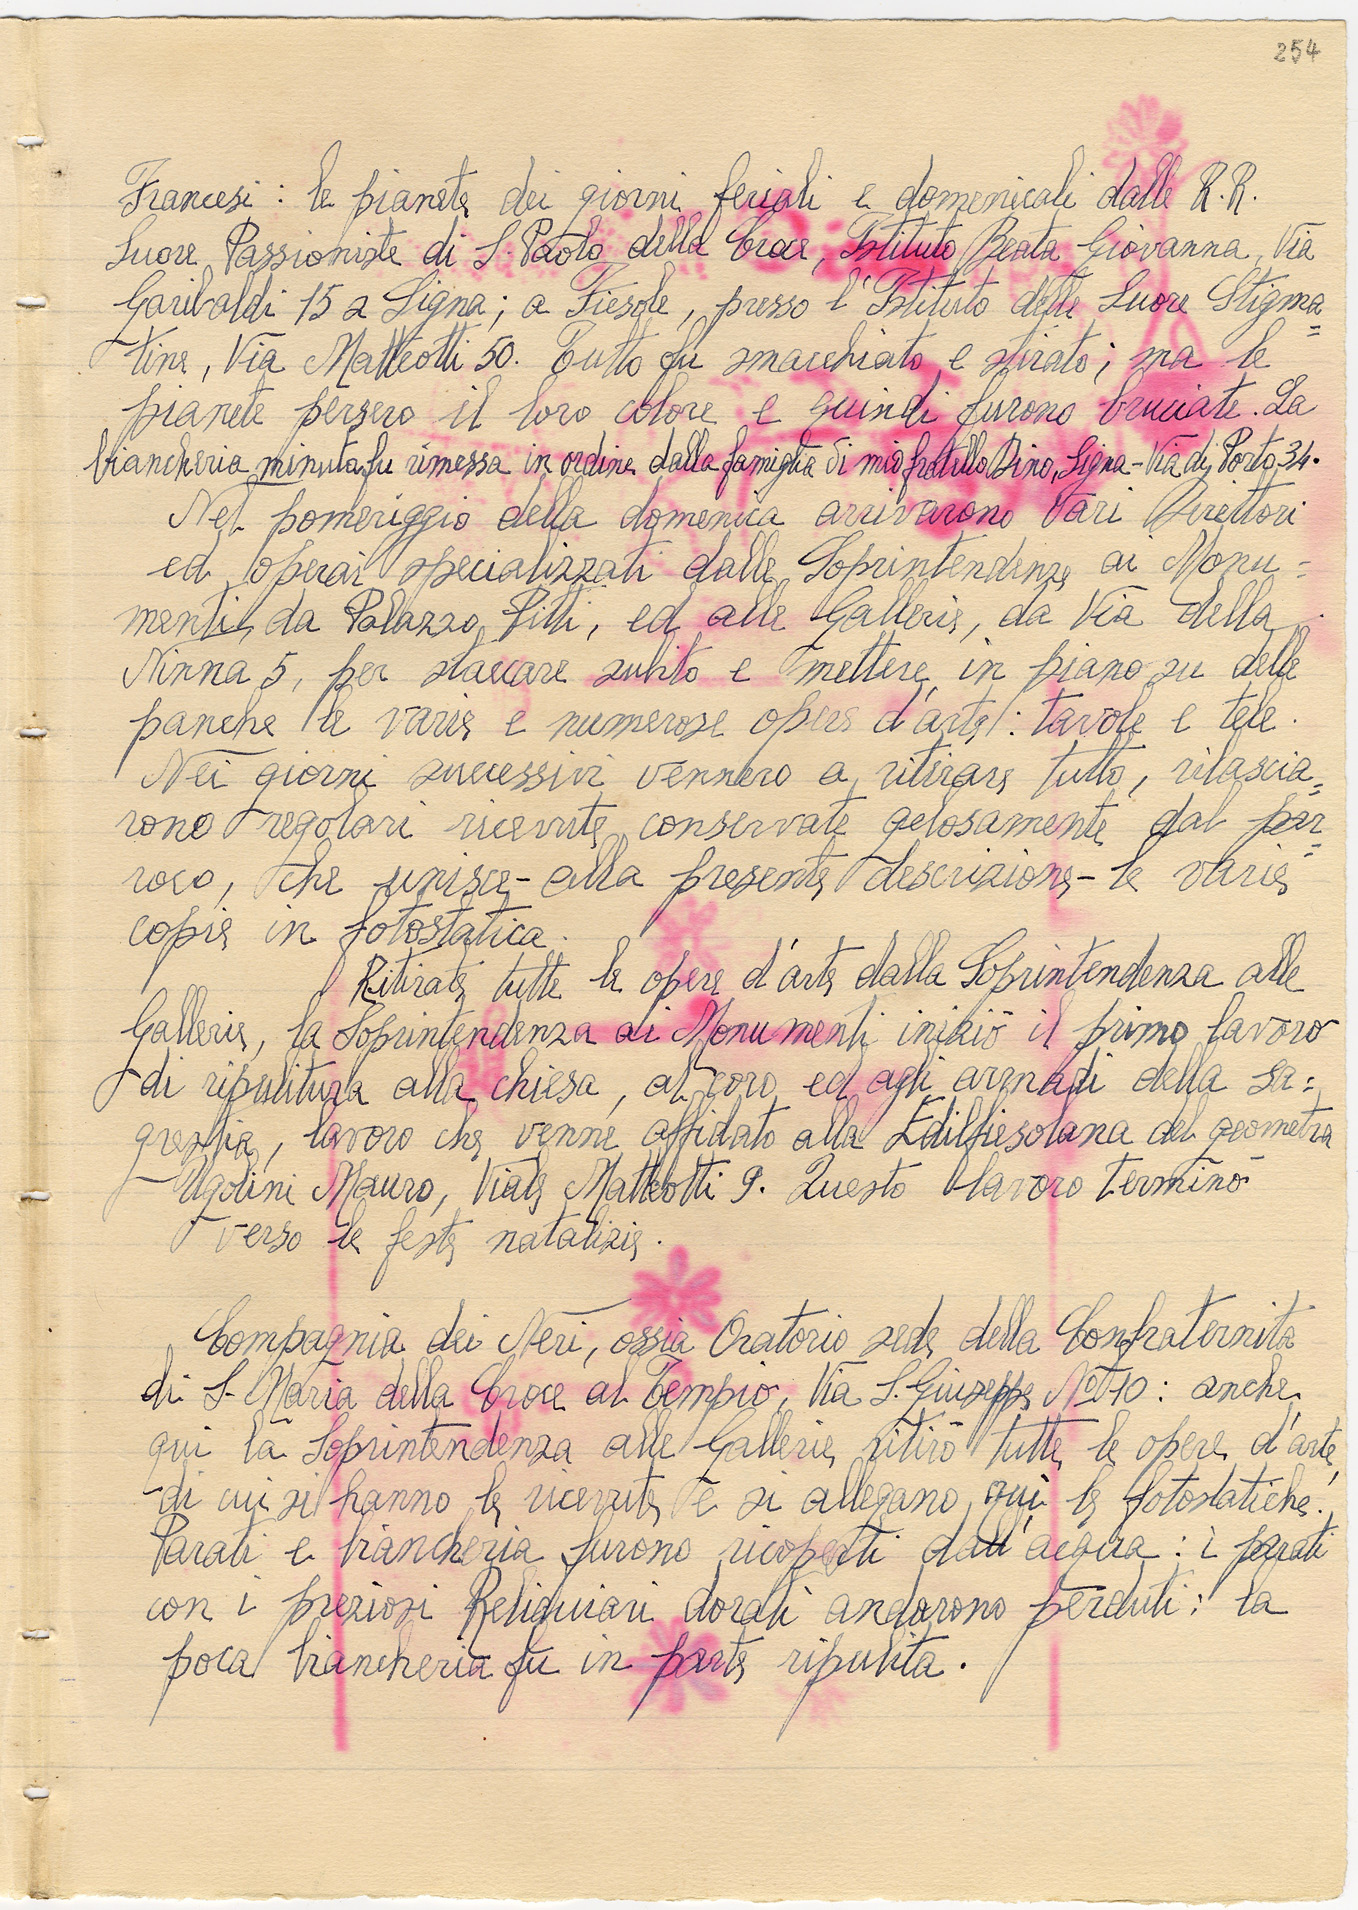 254
Francesi: le pianete dei giorni feriali e domenicali dalle R.R.
Suore Passioniste di S. Paolo della Croce, Istituto Beata Giovanna, Via
Garibaldi 15 a Signa; a Fiesole, presso l'Istituto delle Suore Stigma=
tine, Via Matteotti 50. Tutto fu smacchiato e stirato; ma le
pianete persero il loro colore e quindi furono bruciate. La
biancheria minuta fu rimessa in ordine dalla famiglia di mio fratello Dino, Signa-Via di Porto 34.
Nel pomeriggio della domenica arrivarono vari Direttori
ed operai specializzati dalle Soprintendenze ai Monu=
menti, da Palazzo Pitti, ed alle Gallerie, da Via della
Ninna 5, per staccare subito e mettere in piano su delle
panche le varie e numerose opere d'arte: tavole e tele.
Nei giorni successivi vennero a ritirare tutto, rilascia=
rono regolari ricevute conservate gelosamente dal par=
roco, che unisce - alla presente descrizione - le varie
copie in fotostatica.
Ritirate tutte le opere d'arte dalla Soprintendenza alle
Gallerie, la Soprintendenza ai Monumenti iniziò il primo lavoro
di ripulitura alla chiesa, al coro ed agli armadi della sa=
grestia, lavoro che venne affidato alla Edilfiesolana del geometra
Ugolini Mauro, Viale Matteotti 9. Questo lavoro terminò
verso le feste natalizie.
Compagnia dei Neri, ossia Oratorio sede della Confraternita
di S. Maria della Croce al Tempio, Via S. Giuseppe No 10: anche
qui la Soprintendenza alle Gallerie ritirò tutte le opere d'arte,
di cui si hanno le ricevute e si allegano qui le fotostatiche.
Parati e biancheria furono ricoperti dall'acqua: i parati
con i preziosi Reliquiari dorati andarono perduti: la
poca biancheria fu in parte ripulita.